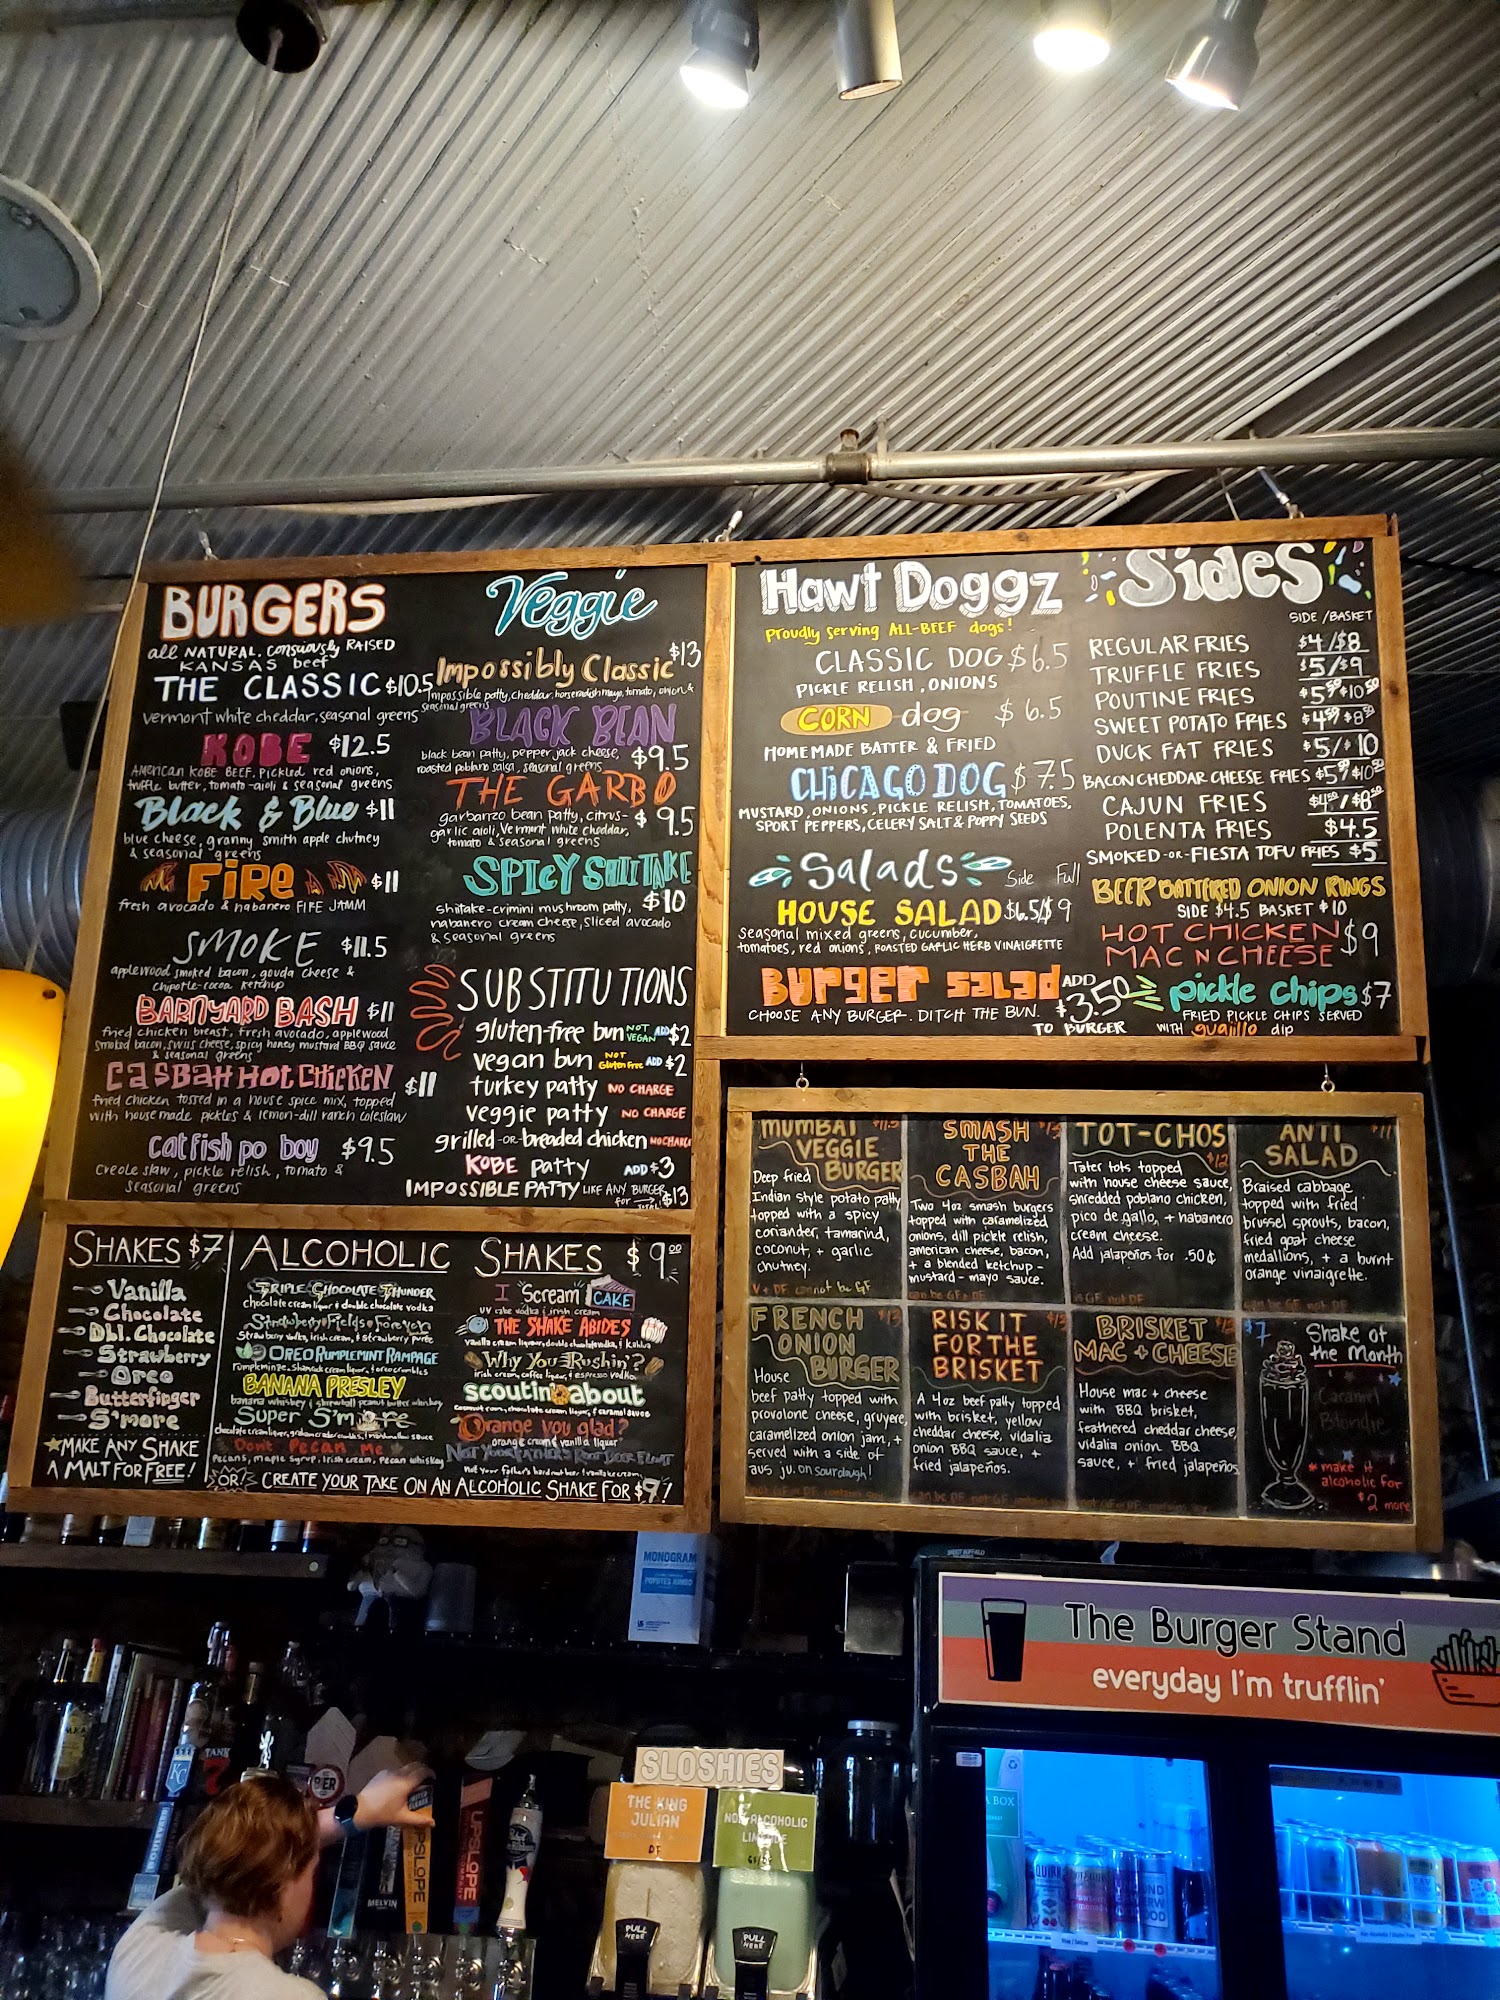 BURGERS
all NATURAL, consciously RAISED
KANSAS beef
THE CLASSIC $10.5
vermont white cheddar, seasonal greens
KOBE $12.5
AMERICAN KOBE BEEF, pickled red onions,
truffle butter, tomato-aioli & seasonal greens
Black & Blue $11
blue cheese, granny smith apple chutney
& seasonal greens
FiRe $11
fresh avocado & habanero FIRE JAMM
SMOKE $11.5
applewood smoked bacon, gouda cheese &
chipotle-cocoa ketchup
BARNYARD BASH $11
fried chicken breast, fresh avocado, applewood
smoked bacon, swiss cheese, spicy honey mustard BBQ sauce
& seasonal greens
CASBAH HOT CHICKEN $11
fried chicken tossed in a house spice mix, topped
with housemade pickles & lemon-dill ranch coleslaw
catfish po boy $9.5
Creole slaw, pickle relish, tomato &
seasonal greens
Veggie
Impossibly Classic $13
Impossible patty, cheddar, horseradish mayo, tomato, onion &
seasonal greens
BLACK BEAN
black bean patty, pepper jack cheese,
roasted poblano salsa, seasonal greens $9.5
THE GARBO
garbanzo bean patty, citrus-
garlic aioli, Vermont white cheddar, $9.5
tomato & seasonal greens
SPICY SHIITAKE
shiitake-crimini mushroom patty, $10
habanero cream cheese, sliced avocado
& seasonal greens
SUBSTITUTIONS
gluten-free bun NOT VEGAN ADD $2
vegan bun NOT Gluten Free ADD $2
turkey patty NO CHARGE
veggie patty NO CHARGE
grilled -OR- breaded chicken NO CHARGE
KOBE patty ADD $3
IMPOSSIBLE PATTY LIKE ANY BURGER for $13
Hawt Doggz
Proudly serving ALL-BEEF dogs!
CLASSIC DOG $6.5
PICKLE RELISH, ONIONS
CORN dog $6.5
HOMEMADE BATTER & FRIED
CHiCAGO DOG $7.5
MUSTARD, ONIONS, PICKLE RELISH, TOMATOES,
SPORT PEPPERS, CELERY SALT & POPPY SEEDS
Salads Side Full
HOUSE SALAD $6.5/$9
seasonal mixed greens, cucumber,
tomatoes, red onions, ROASTED GARLIC HERB VINAIGRETTE
Burger salad ADD $3.50
CHOOSE ANY BURGER. DITCH THE BUN. TO BURGER
SideS
SIDE / BASKET
REGULAR FRIES $4/$8
TRUFFLE FRIES $5/$9
POUTINE FRIES $5.50/$10.50
SWEET POTATO FRIES $4.50/$8.50
DUCK FAT FRIES $5/$10
BACON CHEDDAR CHEESE FRIES $5.50/$10.50
CAJUN FRIES $4.50/$8.50
POLENTA FRIES $4.5
SMOKED -OR- FIESTA TOFU FRIES $5
BEER BATTERED ONION RINGS
SIDE $4.5 BASKET $10
HOT CHICKEN
MAC N CHEESE $9
pickle chips $7
FRIED PICKLE CHIPS SERVED
WITH guajillo dip
SHAKES $7
Vanilla
Chocolate
Dbl. Chocolate
Strawberry
Oreo
Butterfinger
S'more
MAKE ANY SHAKE
A MALT FOR FREE!
ALCOHOLIC SHAKES $9.00
TRIPLE CHOCOLATE THUNDER
chocolate cream liquor & double chocolate vodka
Strawberry Fields Forever
Strawberry vodka, irish cream, & strawberry purée
OREO RUMPLEMINT RAMPAGE
rumpleminze, shamrock cream liquor, & oreo crumbles
BANANA PRESLEY
banana whiskey & skrewball peanut butter whiskey
Super S'more
chocolate cream liquor, graham cracker crumbles, & marshmallow sauce
Don't Pecan Me
Pecans, maple syrup, irish cream, pecan whiskey
I Scream CAKE
UV cake vodka & irish cream
THE SHAKE ABIDES
vanilla cream liquor, double chocolate vodka, & Kahlua
Why You Rushin'?
irish cream, coffee liquor, & espresso vodka
scoutin about
coconut rum, chocolate cream liquor, & caramel sauce
Orange you glad?
orange cream & vanilla liquor
NOT YOUR FATHER'S ROOT BEER FLOAT
not your father's hard root beer & vanilla ice cream
OR! CREATE YOUR TAKE ON AN ALCOHOLIC SHAKE FOR $9!
MUMBAI $11.5
VEGGIE
BURGER
Deep fried
Indian style potato patty
topped with a spicy
coriander, tamarind,
coconut, + garlic
chutney.
V + DF cannot be GF
SMASH
THE
CASBAH
Two 4oz smash burgers
topped with caramelized
onions, dill pickle relish,
american cheese, bacon,
+ a blended ketchup-
mustard-mayo sauce.
can be GF + DF
TOT-CHOS
$12
Tater tots topped
with house cheese sauce,
shredded poblano chicken,
pico de gallo, + habanero
cream cheese.
Add jalapeños for .50¢
is GF not DF
ANTI
SALAD
$11
Braised cabbage
topped with fried
brussel sprouts, bacon,
fried goat cheese
medallions, + a burnt
orange vinaigrette.
can be GF not DF
FRENCH $13
ONION
BURGER
House
beef patty topped with
provolone cheese, gruyere,
caramelized onion jam, +
served with a side of
aus ju. on sourdough!
RISK IT $13
FOR THE
BRISKET
A 4oz beef patty topped
with brisket, yellow
cheddar cheese, vidalia
onion BBQ sauce, +
fried jalapeños.
BRISKET
MAC + CHEESE
House mac + cheese
with BBQ brisket,
feathered cheddar cheese,
vidalia onion BBQ
sauce, + fried jalapeños
$7 Shake of
the Month
Caramel
Blondie
* make it
alcoholic for
$2 more
MONOGRAM
The Burger Stand
everyday I'm trufflin'
SLOSHIES
THE KING
JULIAN
DF
NON-ALCOHOLIC
LIMEADE
PULL
HERE
PULL
HERE
KC
TANK
7
BOULEVARD
MELVIN
UPSLOPE
UPSLOPE